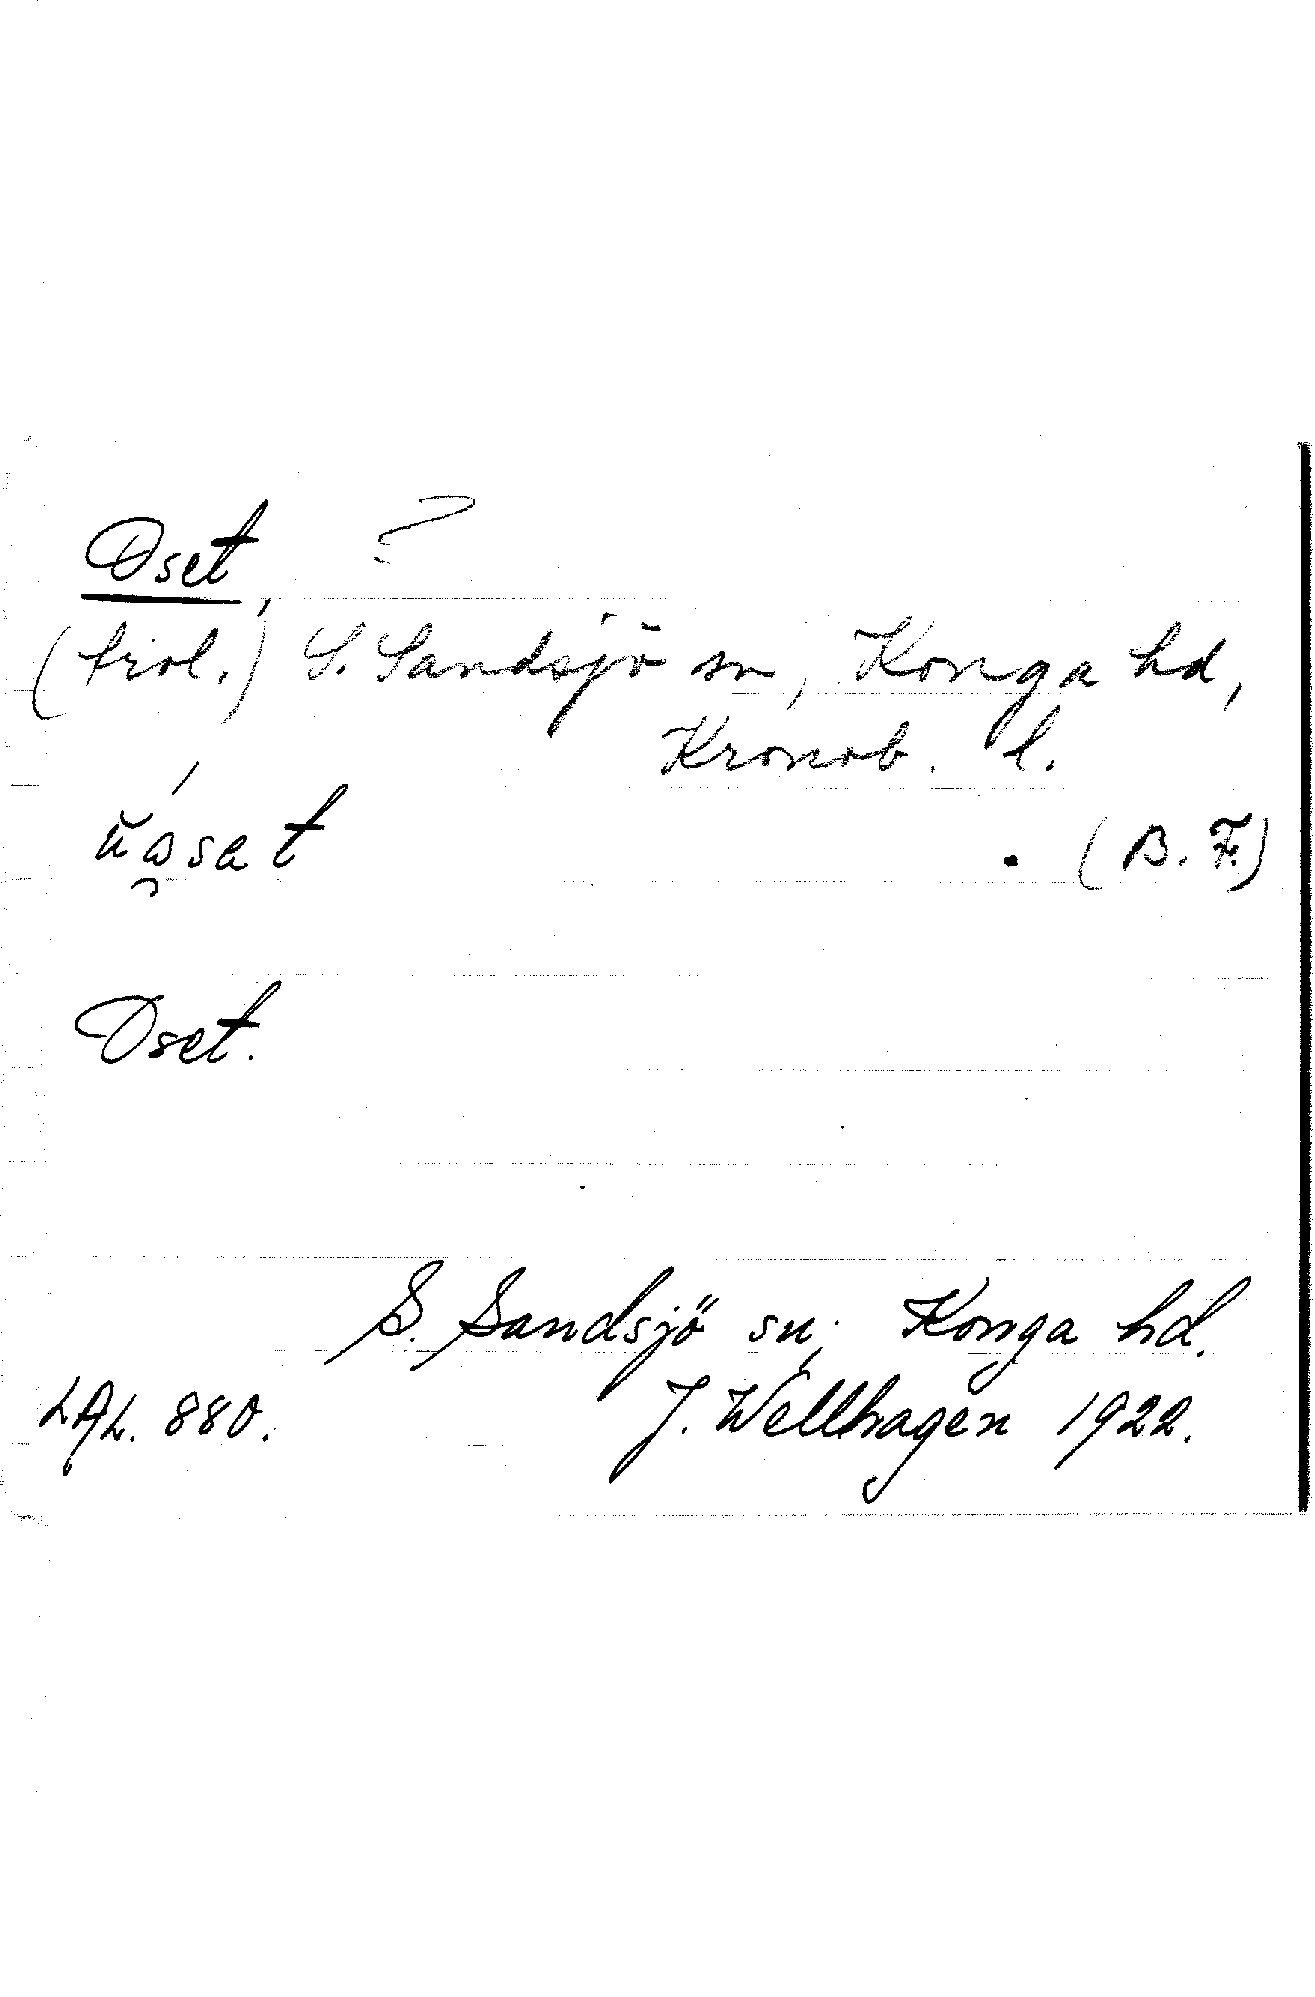 Oset, ?
(trol.) S. Sandsjö sn, Konga hd,
Kronob. l.
(B. F.)
Oset.
S. Sandsjö sn, Konga hd.
LAL. 880. J. Wellhagen 1922.